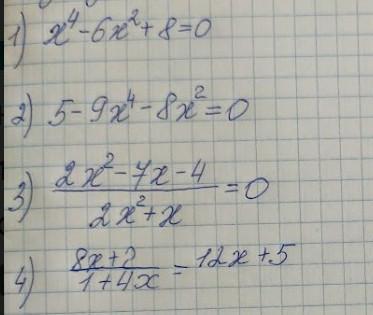 1) x⁴-6x²+8=0
2) 5-9x⁴-8x²=0
3) (2x²-7x-4)/(2x²+x)=0
4) (8x+2)/(1+4x)=12x+5